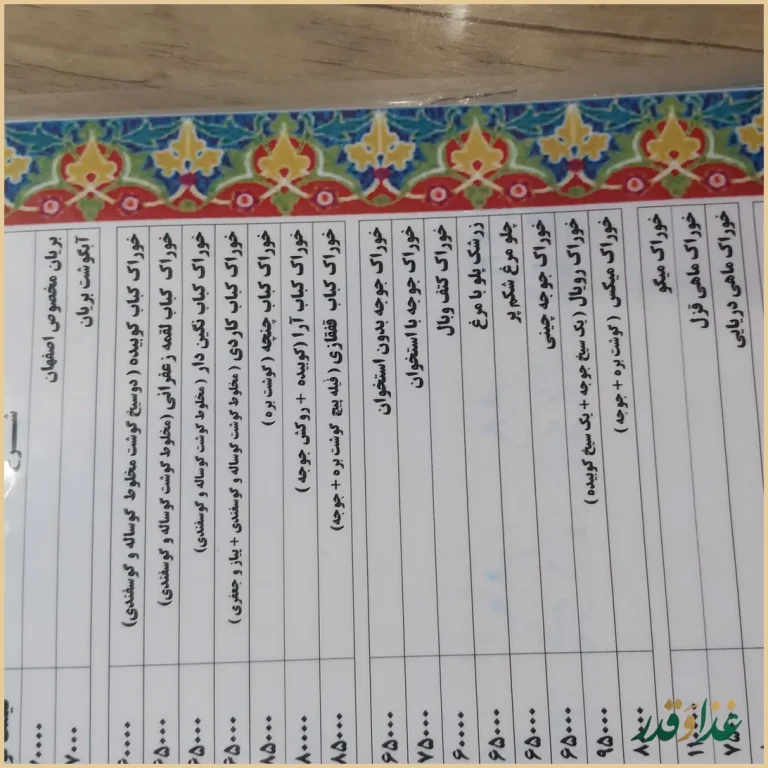 شرح
بریان مخصوص اصفهان
آبگوشت بریان
خوراک کباب کوبیده ( دوسیخ گوشت مخلوط گوساله و گوسفندی)
خوراک کباب لقمه زعفرانی (مخلوط گوشت گوساله و گوسفندی)
خوراک کباب نگین دار (مخلوط گوشت گوساله و گوسفندی)
خوراک کباب کاردی ( مخلوط گوشت گوساله و گوسفندی + پیاز و جعفری ) ۶۵۰۰۰
خوراک کباب چنجه ( گوشت بره ) ۸۵۰۰۰
خوراک کباب آرا (کوبیده + روکش جوجه ) ۸۰۰۰۰
خوراک کباب قفقازی ( فیله پیچ گوشت بره + جوجه) ۸۵۰۰۰
خوراک جوجه بدون استخوان ۶۵۰۰۰
خوراک جوجه با استخوان ۷۵۰۰۰
خوراک کتف وبال ۶۰۰۰۰
زرشک پلو با مرغ ۶۵۰۰۰
چلو مرغ شکم پر ۶۵۰۰۰
خوراک جوجه چینی ۶۵۰۰۰
خوراک رویال ( یک سیخ جوجه + یک سیخ کوبیده ) ۶۵۰۰۰
خوراک میکس ( گوشت بره + جوجه ) ۹۵۰۰۰
خوراک میگو
خوراک ماهی قزل
خوراک ماهی دریایی
غذا و قدر